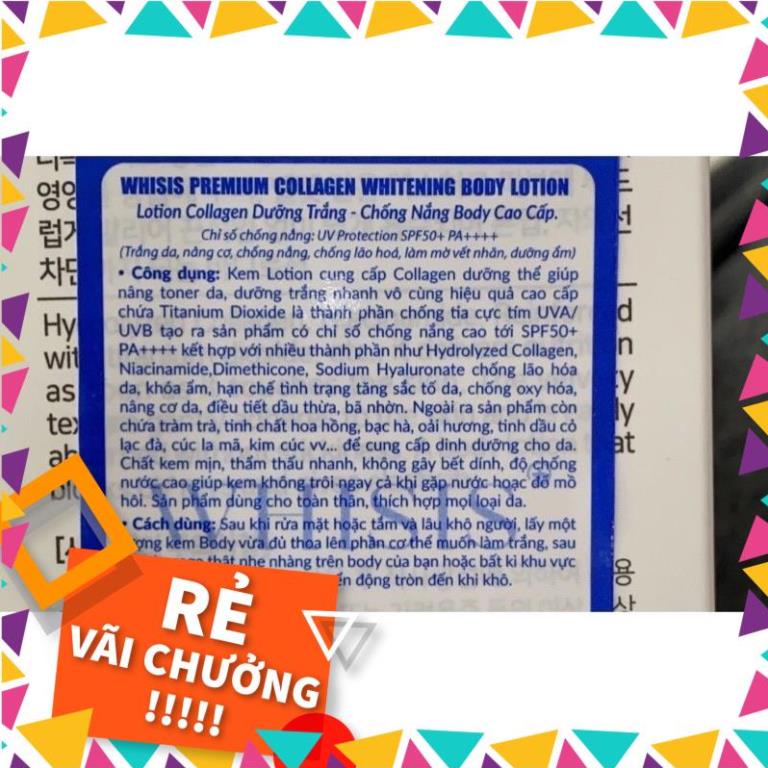 WHISIS PREMIUM COLLAGEN WHITENING BODY LOTION
Lotion Collagen Dưỡng Trắng - Chống Nắng Body Cao Cấp.
Chỉ số chống nắng: UV Protection SPF50+ PA++++
(Trắng da, nâng cơ, chống nắng, chống lão hoá, làm mờ vết nhăn, dưỡng ẩm)
• Công dụng: Kem Lotion cung cấp Collagen dưỡng thể giúp
nâng toner da, dưỡng trắng nhanh vô cùng hiệu quả cao cấp
chứa Titanium Dioxide là thành phần chống tia cực tím UVA/
UVB tạo ra sản phẩm có chỉ số chống nắng cao tới SPF50+
PA++++ kết hợp với nhiều thành phần như Hydrolyzed Collagen,
Niacinamide,Dimethicone, Sodium Hyaluronate chống lão hóa
da, khóa ẩm, hạn chế tình trạng tăng sắc tố da, chống oxy hóa,
nâng cơ da, điều tiết dầu thừa, bã nhờn. Ngoài ra sản phẩm còn
chứa tràm trà, tinh chất hoa hồng, bạc hà, oải hương, tinh dầu cỏ
lạc đà, cúc la mã, kim cúc vv... để cung cấp dinh dưỡng cho da.
Chất kem mịn, thẩm thấu nhanh, không gây bết dính, độ chống
nước cao giúp kem không trôi ngay cả khi gặp nước hoặc đổ mồ
hôi. Sản phẩm dùng cho toàn thân, thích hợp mọi loại da.
WHISIS
• Cách dùng: Sau khi rửa mặt hoặc tắm và lâu khô người, lấy một
kem Body vừa đủ thoa lên phần cơ thể muốn làm trắng, sau
thật nhẹ nhàng trên body của bạn hoặc bất kì khu vực
động tròn đến khi khô.
영양
럽게
차단
Hy
wit
as
tex
ab
RẺ
VÃI CHƯỞNG
!!!!!